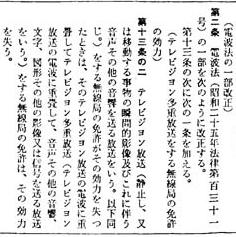 （電波法の一部改正）
第二条　電波法（昭和二十五年法律第百三十一
号）の一部を次のように改正する。
第十三条の次に次の一条を加える。
（テレビジョン多重放送をする無線局の免許
の効力）
第十三条の二　テレビジョン放送（静止し、又
は移動する事物の瞬間的影像及びこれに伴う
音声その他の音響を送る放送をいう。以下同
じ。）をする無線局の免許がその効力を失つ
たときは、そのテレビジョン放送の電波に重
畳してテレビジョン多重放送（テレビジョン
放送の電波に重畳して、音声その他の音響、
文字、図形その他の影像又は信号を送る放送
をいう。）をする無線局の免許は、その効力
を失う。